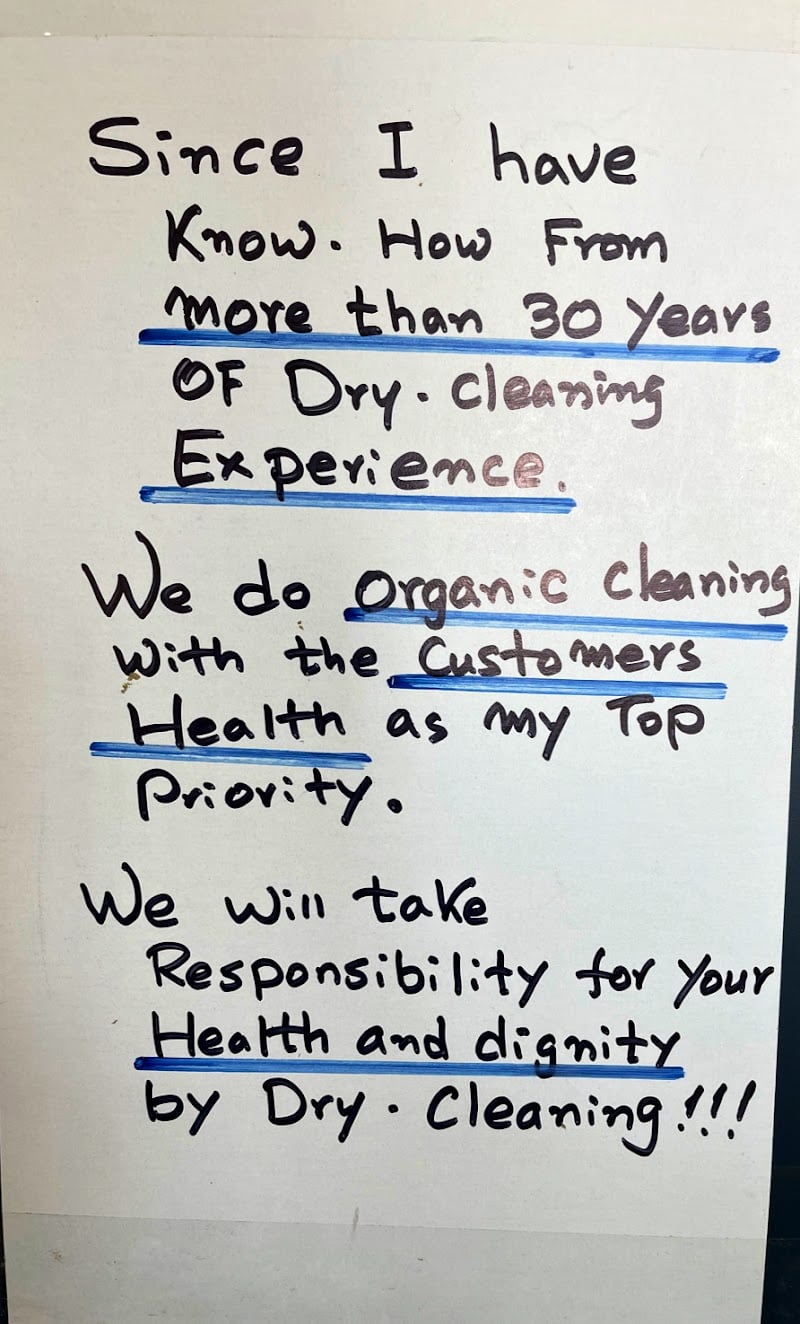 Since I have
Know. How From
more than 30 Years
OF Dry. cleaning
Experience.
We do organic cleaning
with the Customers
Health as my Top
Priority.
We will take
Responsibility for your
Health and dignity
by Dry. Cleaning!!!